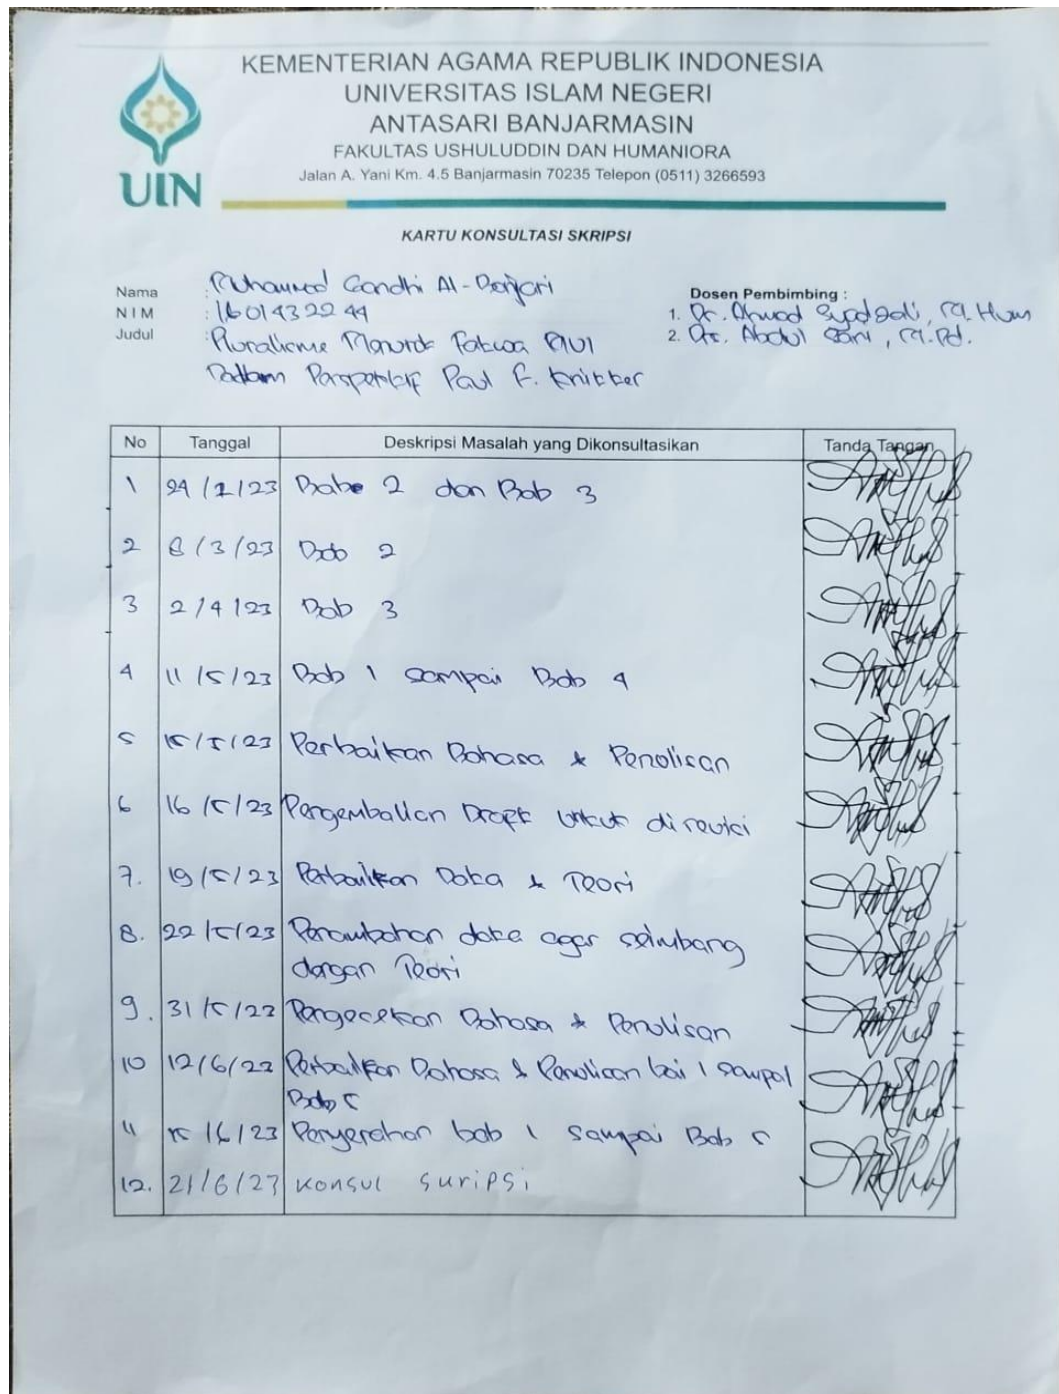 KEMENTERIAN AGAMA REPUBLIK INDONESIA
UNIVERSITAS ISLAM NEGERI
ANTASARI BANJARMASIN
FAKULTAS USHULUDDIN DAN HUMANIORA
Jalan A. Yani Km. 4.5 Banjarmasin 70235 Telepon (0511) 3266593
UIN
KARTU KONSULTASI SKRIPSI
Nama : Muhammad Gandhi Al-Banjari
NIM : 1601432244
Judul : Pluralisme Menurut Fatwa MUI
Dalam Perspektif Paul F. Knitter
Dosen Pembimbing :
1. Dr. Ahmad Syadzali, M. Hum
2. Drs. Abdul Sani, M.Pd.
No Tanggal Deskripsi Masalah yang Dikonsultasikan Tanda Tangan
1 24/2/23 Babe 2 dan Bab 3
2 8/3/23 Bab 2
3 2/4/23 Bab 3
4 11/5/23 Bab 1 sampai Bab 4
5 15/5/23 Perbaikan Bahasa & Penulisan
6 16/5/23 Pengembalian Draft untuk direvisi
7. 19/5/23 Perbaikan Data & Teori
8. 22/5/23 Penambahan data agar seimbang
dengan Teori
9. 31/5/23 Pengecekan Bahasa & Penulisan
10 12/6/23 Perbaikan Bahasa & Penulisan bai 1 sampai
Bab 5
11 15/6/23 Penyerahan bab 1 sampai Bab 5
12. 21/6/23 Konsul suripsi